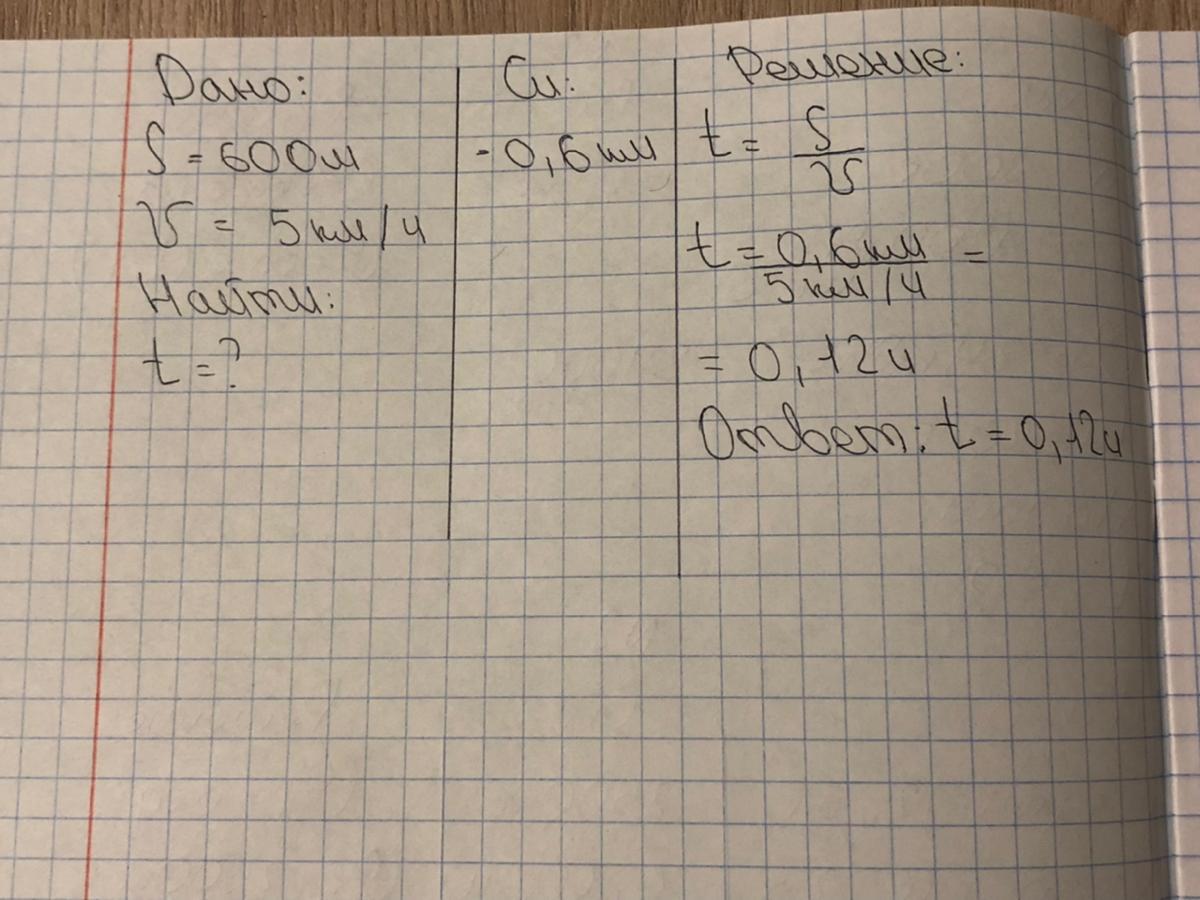 Дано:
S = 600м
V = 5 км/ч
Найти:
t = ?
Си:
- 0,6 км
Решение:
t = S
V
t = 0,6 км =
5 км/ч
= 0,12ч
Ответ: t = 0,12ч